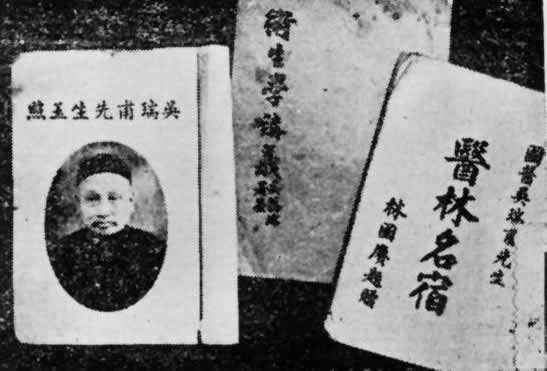 吳瑞甫先生玉照
衛生學講義
國醫吳瑞甫先生
醫林名宿
林國賡題贈